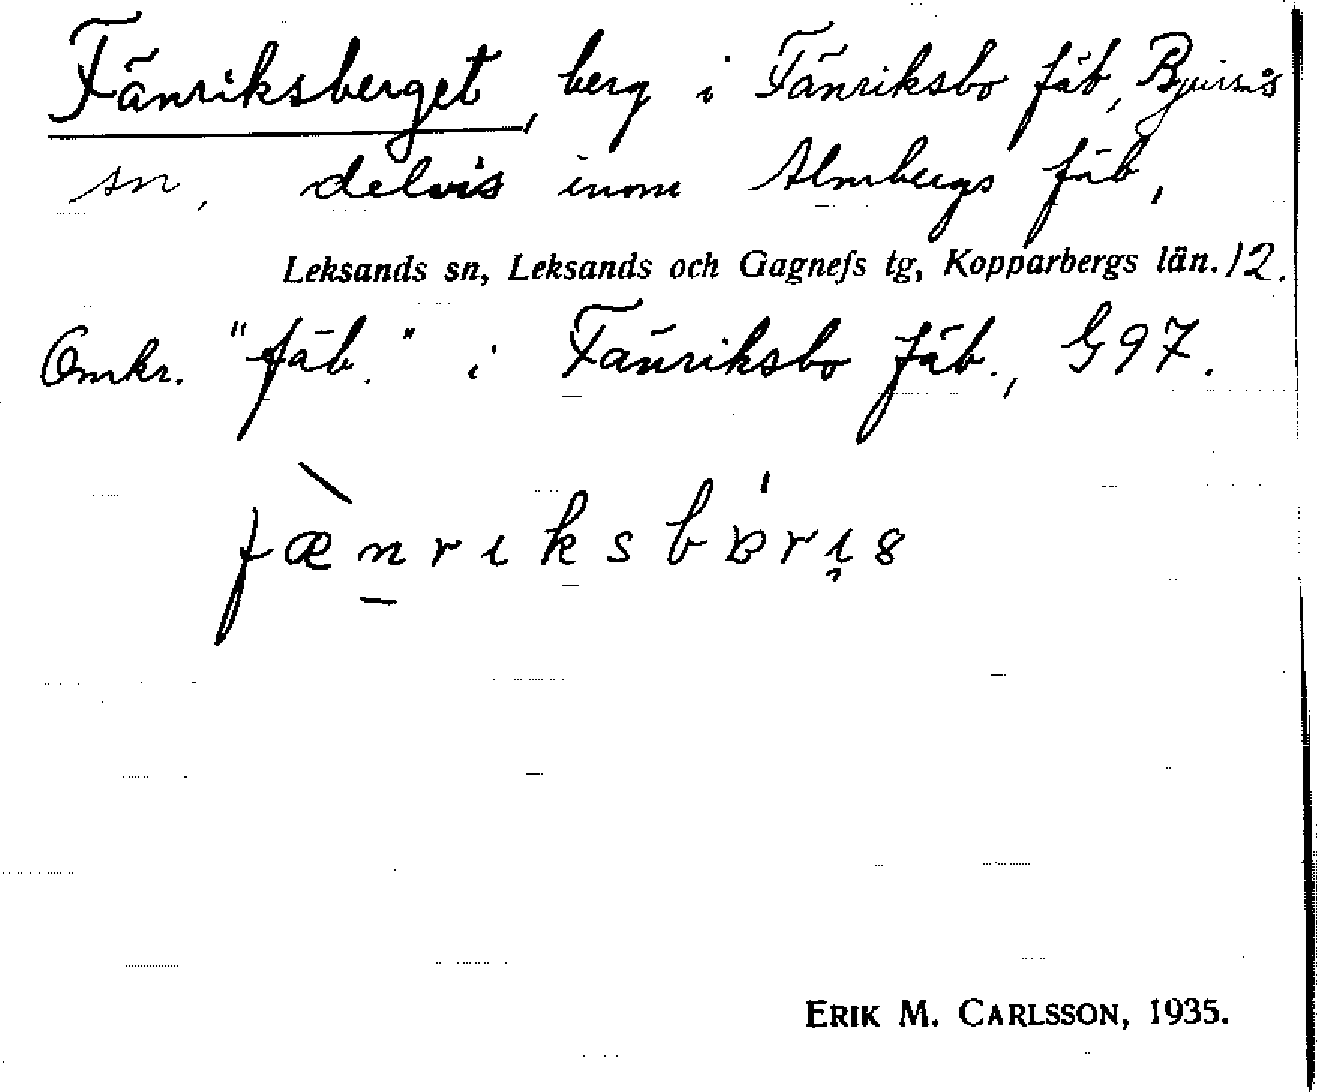 Fänriksberget, berg i Fänriksbo fäb, Bjursås
sn, delvis inom Almbergs fäb,
Leksands sn, Leksands och Gagnefs tg, Kopparbergs län. 12.
Omkr. "fäb." i Fänriksbo fäb., G 97.
fæ̀nriksbɒ́rı̨s
ERIK M. CARLSSON, 1935.